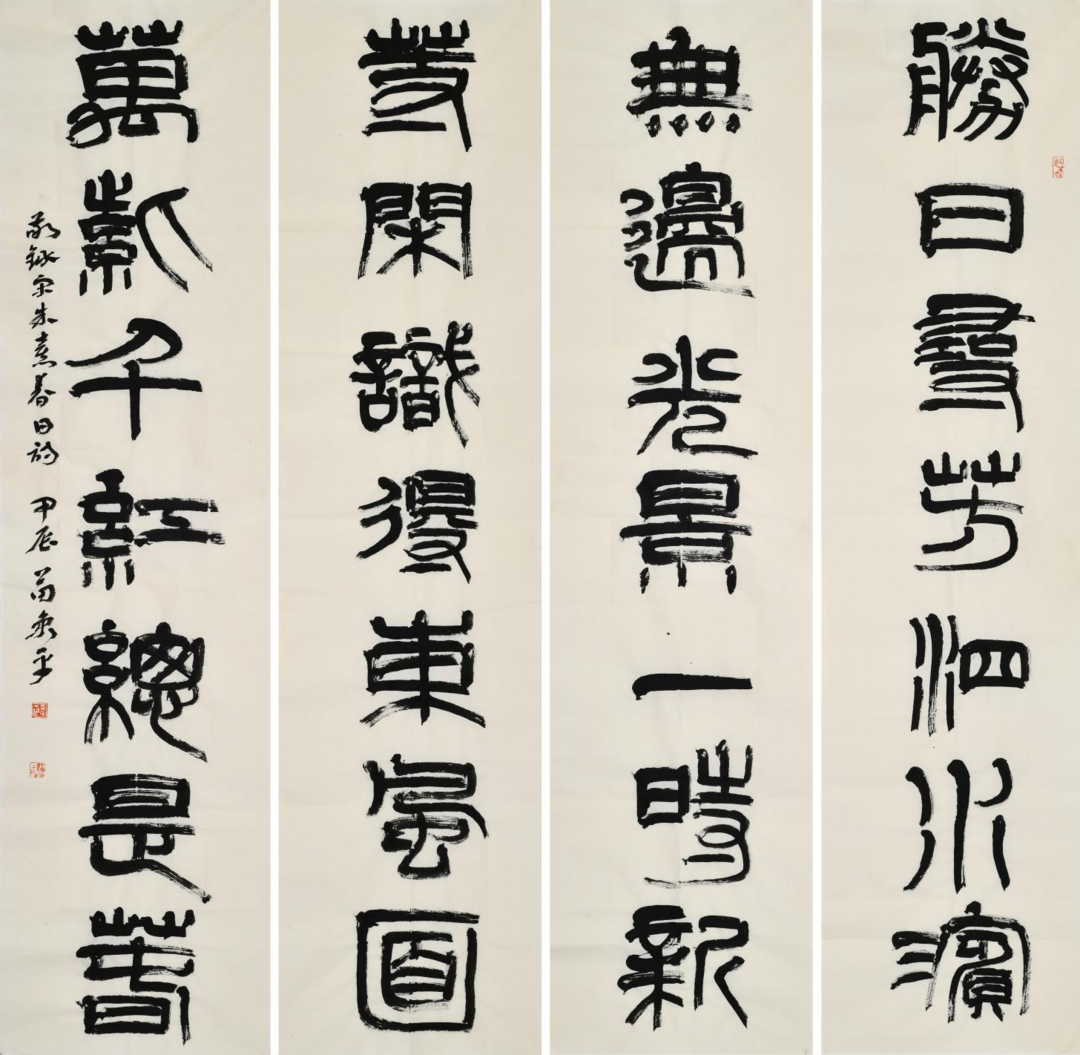 勝日尋芳泗水濱
無邊光景一時新
等閑識得東風面
萬紫千紅總是春
敬錄宋朱熹春日詩 甲辰